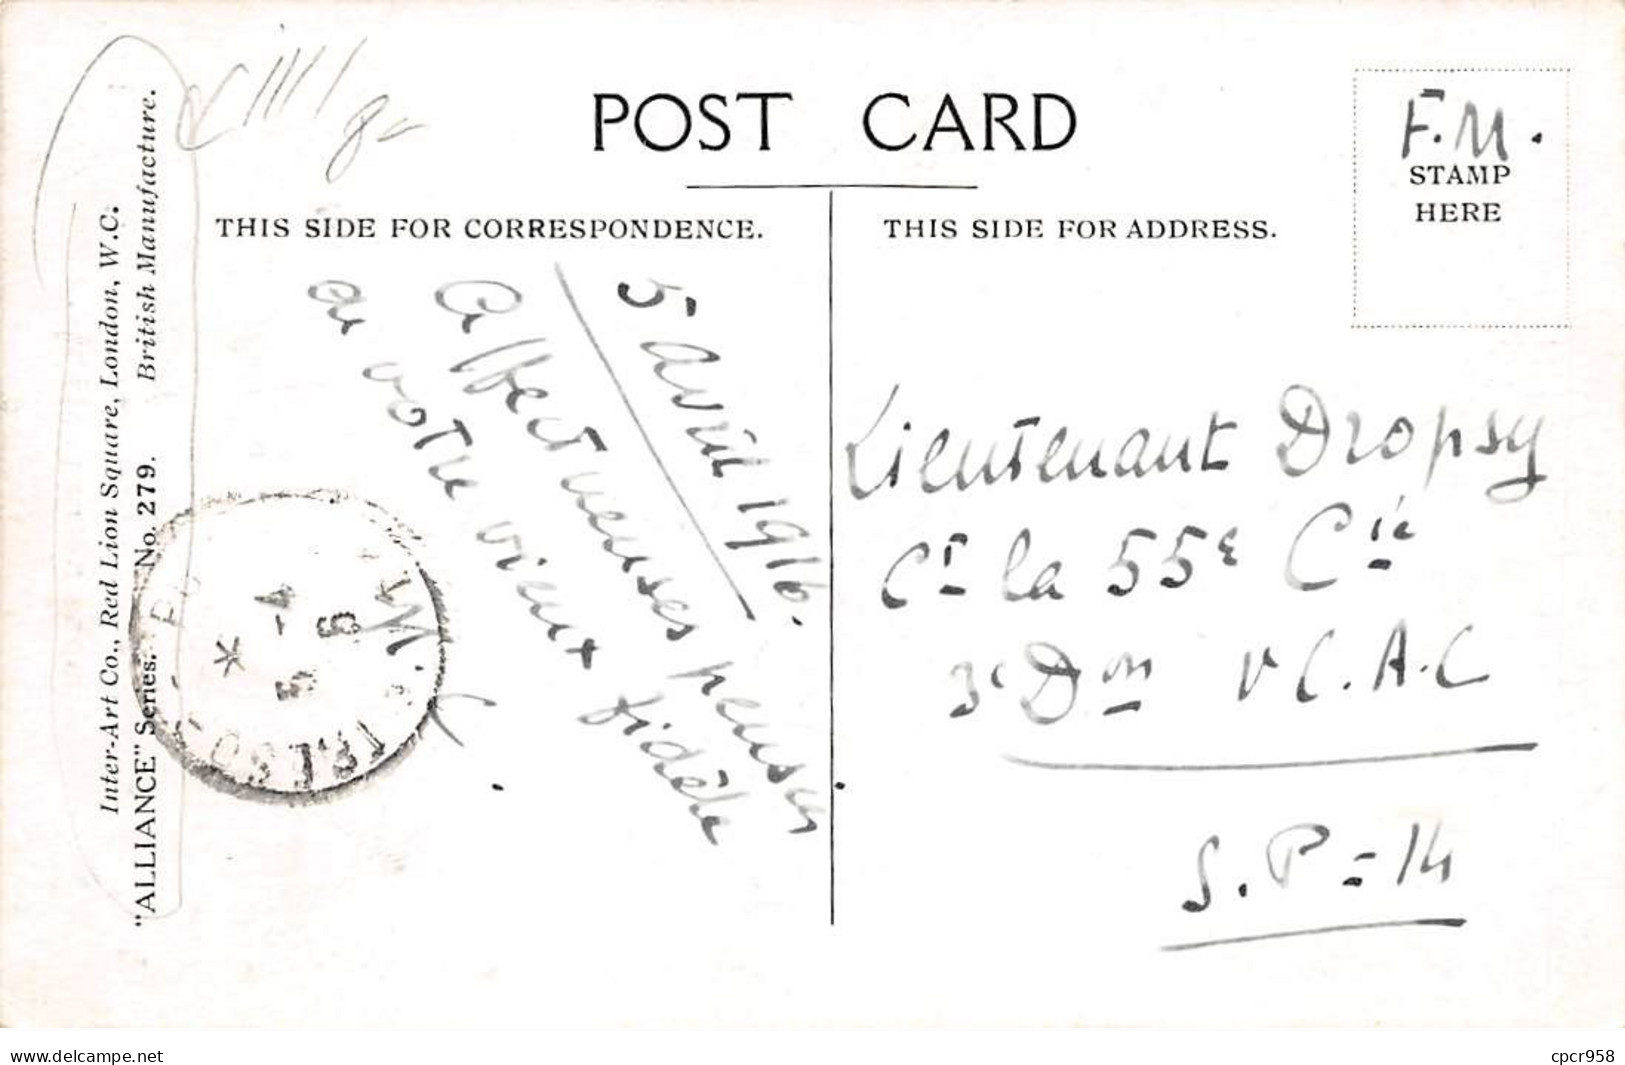 POST CARD
THIS SIDE FOR CORRESPONDENCE.
THIS SIDE FOR ADDRESS.
F.M.
STAMP
HERE
5 avril 1916.
Affectueuses pensées
de votre vieux fidèle
Lieutenant Dropsy
Ct la 55e Cie
3e Don V C.A.C
S.P = 14
Inter-Art Co., Red Lion Square, London, W.C.
"ALLIANCE" Series. No. 279. British Manufacture.
* 5 -4
delcampe.net
cpcr958